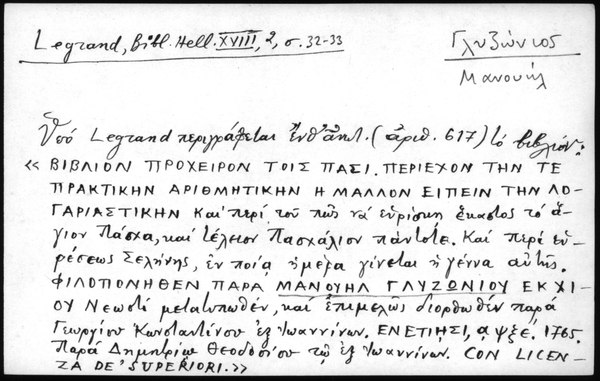 Legrand, Bibl. Hell. XVIII, 2, σ. 32-33
Γλυζώνιος
Μανουήλ
Ὑπό Legrand περιγράφεται ἐνθ' ἀνωτ. (ἀριθ. 617) τό βιβλίον:
« ΒΙΒΛΙΟΝ ΠΡΟΧΕΙΡΟΝ ΤΟΙΣ ΠΑΣΙ. ΠΕΡΙΕΧΟΝ ΤΗΝ ΤΕ
ΠΡΑΚΤΙΚΗΝ ΑΡΙΘΜΗΤΙΚΗΝ Η ΜΑΛΛΟΝ ΕΙΠΕΙΝ ΤΗΝ ΛΟ-
ΓΑΡΙΑΣΤΙΚΗΝ Καί περί τοῦ πῶς νά εὑρίσκῃ ἕκαστος τό ἅ-
γιον Πάσχα, καί τέλειον Πασχάλιον πάντοτε. Καί περί εὑ-
ρέσεως Σελήνης, ἐν ποίᾳ ἡμέρᾳ γίνεται ἡ γέννα αὐτῆς.
ΦΙΛΟΠΟΝΗΘΕΝ ΠΑΡΑ ΜΑΝΟΥΗΛ ΓΛΥΖΩΝΙΟΥ ΕΚ ΧΙ-
ΟΥ Νεωστί μετατυπωθέν, καί ἐπιμελῶς διορθωθέν παρά
Γεωργίου Κωνσταντίνου ἐξ Ἰωαννίνων. ΕΝΕΤΙΗΣΙ, αψξέ. 1765.
Παρά Δημητρίῳ Θεοδοσίου τῷ ἐξ Ἰωαννίνων. CON LICEN-
ZA DE' SUPERIORI.»